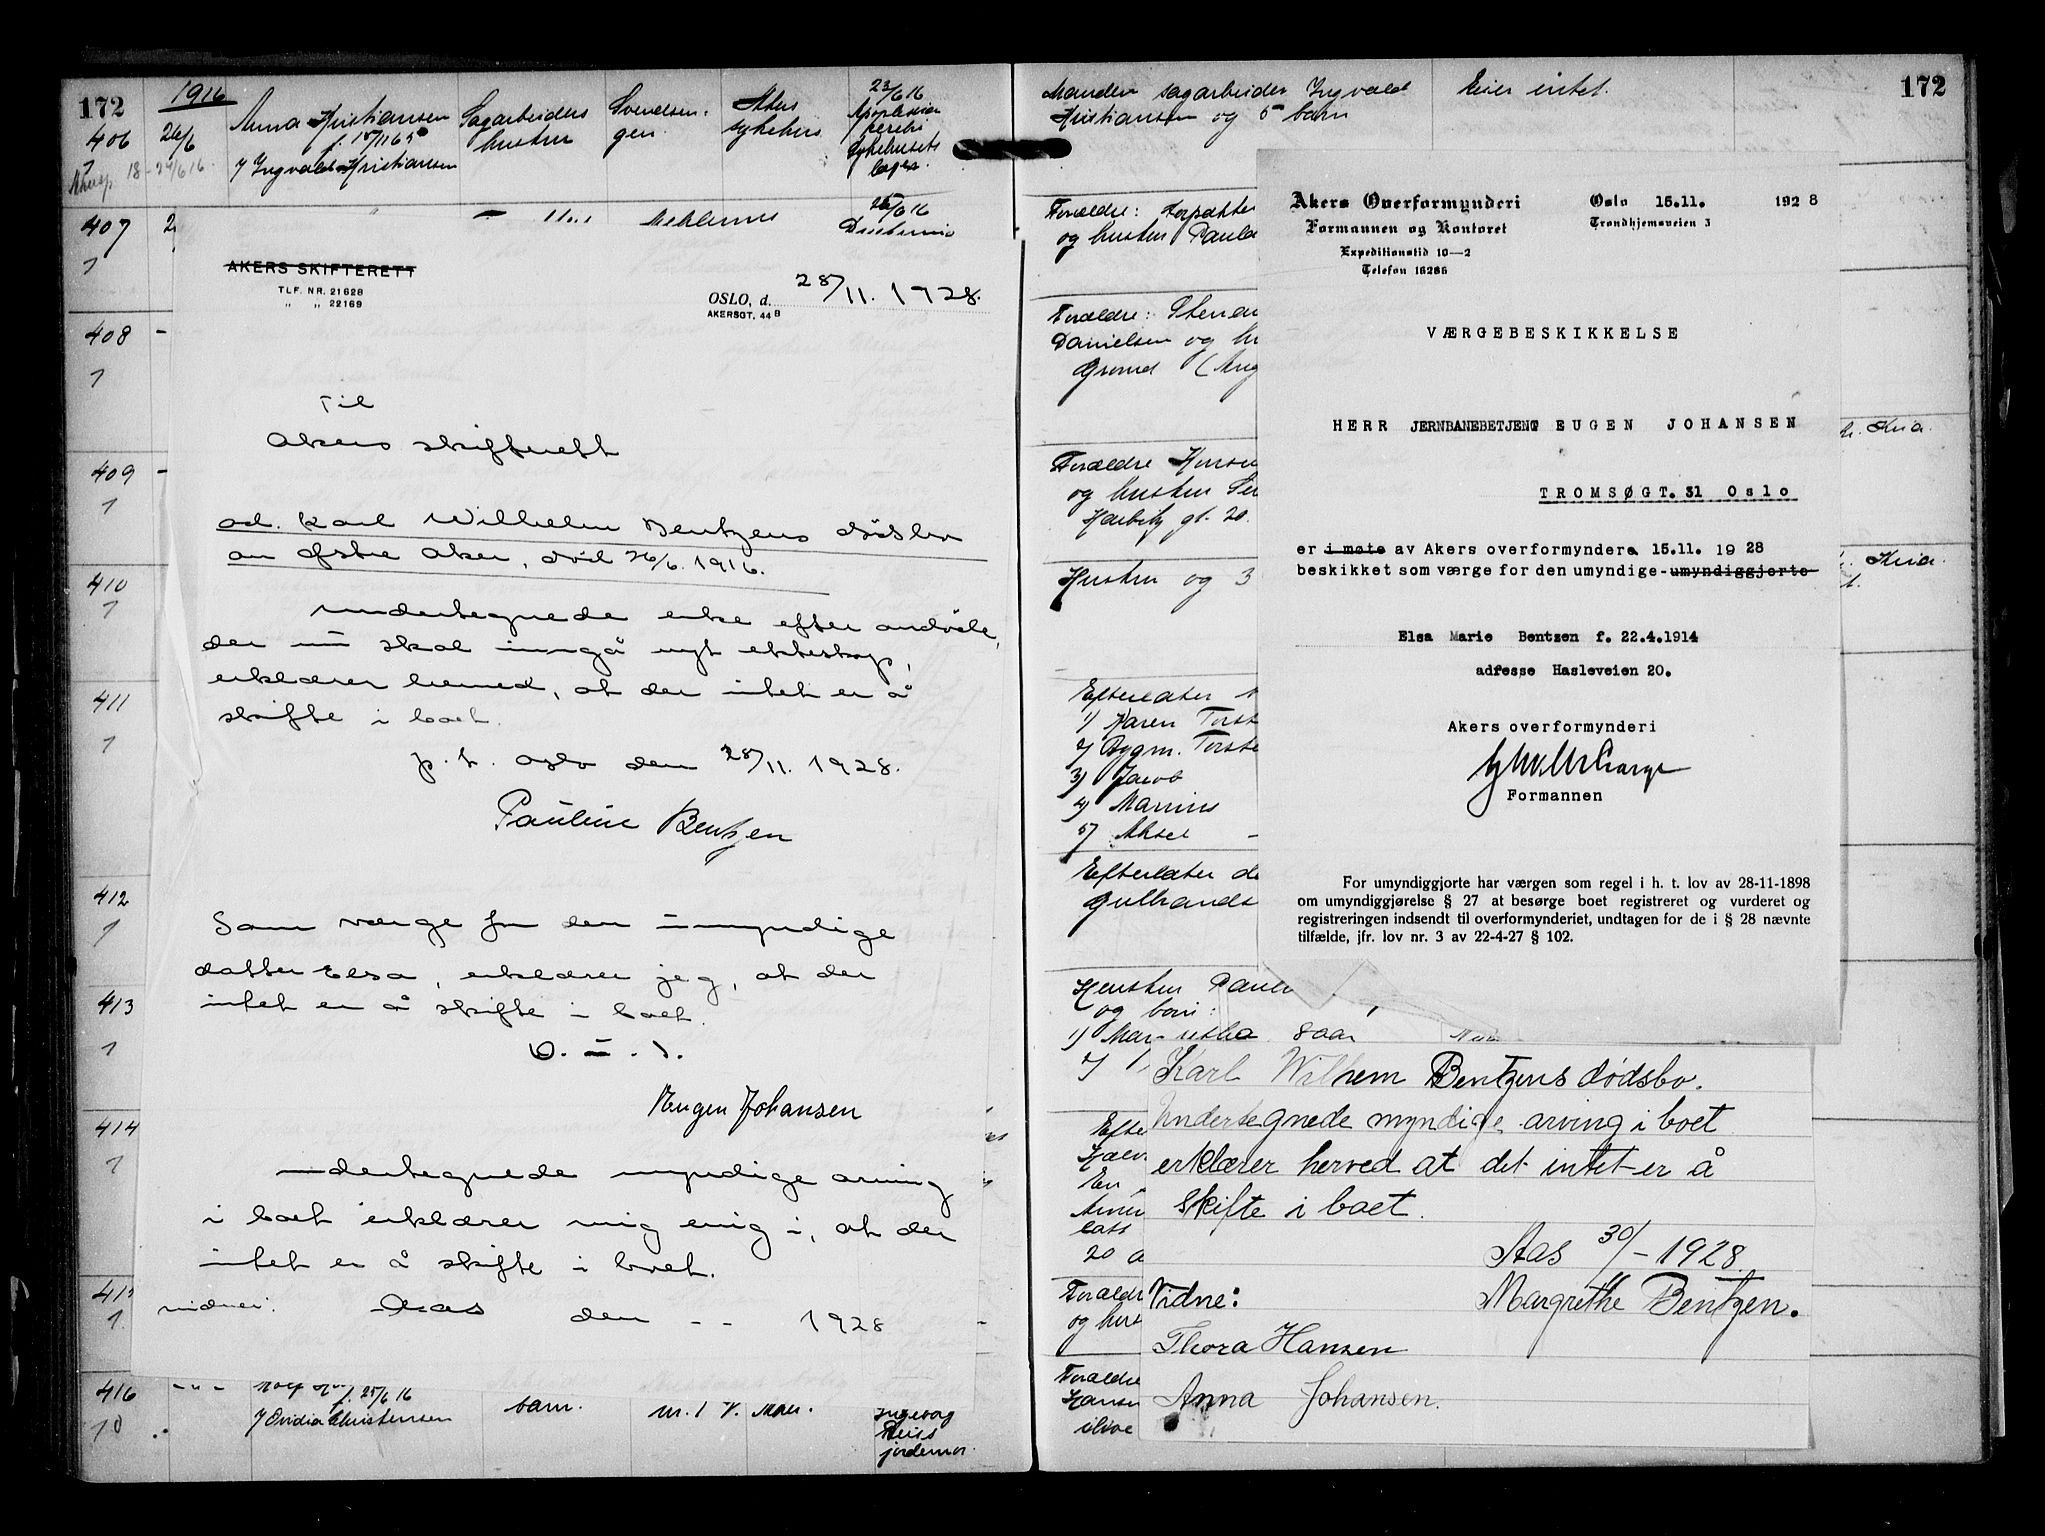 172
1916
406 26/6 Anna Kristiansen Sagarbeiders Svendsen- Akers 23/6 16
f. 15/11 65 hustru gen. sykehus Apoplexia
7 18-24/6 16 Ingvald Kristiansen cerebri
sykehusets
læge
407 25/6 16
1
AKERS SKIFTERETT
TLF. NR. 21628
" " 22169
OSLO, d. 28/11. 1928.
AKERSGT. 44 B
408 -
1
Til
Akers skifterett
409 -
1
ad. Karl Wilhelm Bentzens dødsbo
av Østre Aker, död 26/6. 1916.
410
1
Undertegnede enke efter avdöde,
der nu skal inngå nyt ekteskap,
erklærer herved, at der intet er å
skifte i boet.
411
1
p. t. Oslo den 28/11. 1928.
Pauline Bentzen
412
1
Som værge for den umyndige
datter Elsa, erklærer jeg, at der
intet er å skifte i boet.
413
1
D. u. s.
Eugen Johansen
414
1
Undertegnede myndige arving
i boet erklærer mig enig i, at der
intet er å skifte i boet.
vidner: Aas den - - 1928
415
1
416 - " - f. 25/6 16
10 Ovidia Christensen barn. nr. 1 V. Aker. Ingeborg
Reiss
jordemor
172
Manden sagarbeider Ingvald Eier intet.
Kristiansen og 5 barn
Forældre:
og hustru Paula
Forældre:
Danielsen og
Forældre
og hustru
Harbitz gt. 20.
Hustru og 3
Efterlater
1) Karen Torst
2) Dygm. Torste
3) Jacob
4) Marius
5) Aksel -
Efterlater de
Gulbrands
Hustru Paul
og barn:
1) Mar-rethe 8 aar
2)
Efte
En
20 a
Forældr
og hust
Forældre
Hansen
Akers Overformynderi Oslo 15.11. 1928
Formannen og Kontoret Trondhjemsveien 3
Expeditionstid 10—2
Telefon 16286
VÆRGEBESKIKKELSE
HERR JERNBANEBETJENT EUGEN JOHANSEN
TROMSØGT. 31 Oslo
er i møte av Akers overformyndere 15.11. 1928
beskikket som værge for den umyndige-umyndiggjorte
Elsa Marie Bentzen f. 22.4.1914
adresse Hasleveien 20.
Akers overformynderi
Formannen
For umyndiggjorte har værgen som regel i h. t. lov av 28-11-1898
om umyndiggjørelse § 27 at besørge boet registreret og vurderet og
registreringen indsendt til overformynderiet, undtagen for de i § 28 nævnte
tilfælde, jfr. lov nr. 3 av 22-4-27 § 102.
Kria.
Kria.
Karl Wilhem Bentzens dødsbo.
Undertegnede myndige arving i boet
erklærer herved at det intet er å
skifte i boet.
Aas 30/11-1928
Vidne: Margrethe Bentzen.
Thora Hansen
Anna Johansen.